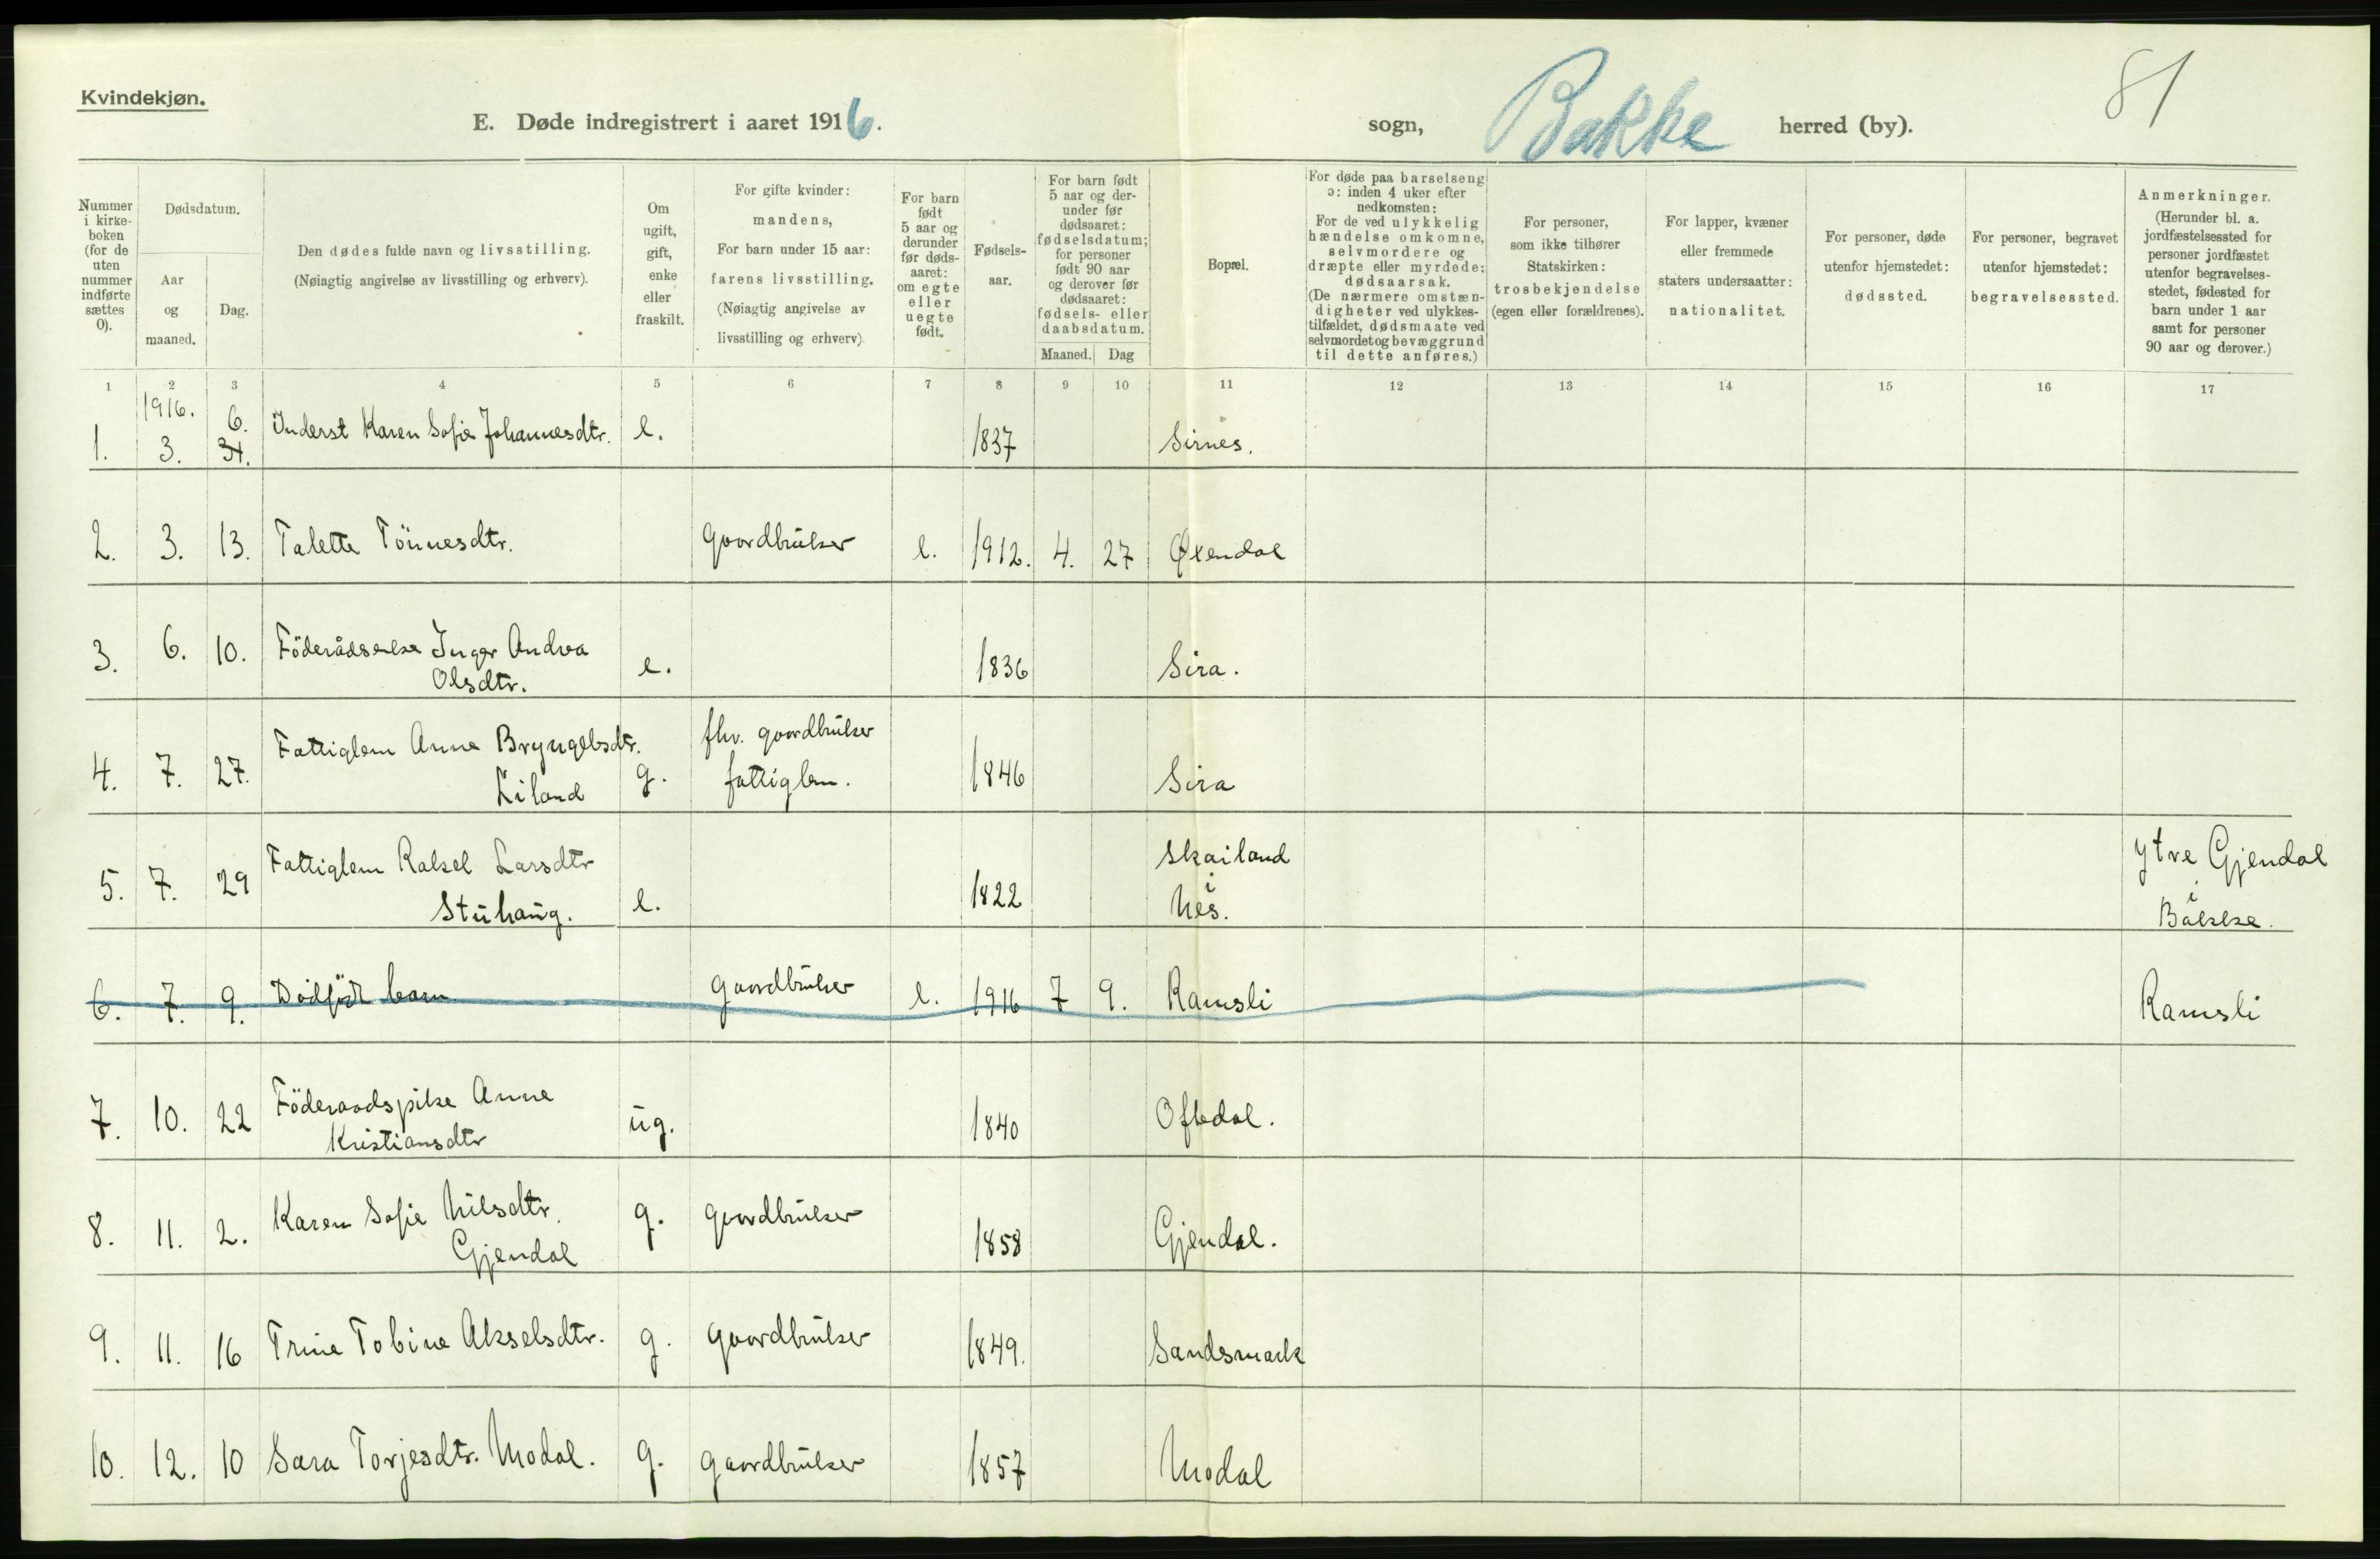 Kvindekjøn.
81
E. Døde indregistrert i aaret 1916.
sogn, Bakke herred (by).
Nummer i kirkeboken (for de uten nummer indførte sættes 0).
Dødsdatum.
Aar og maaned.
Dag.
Den dødes fulde navn og livsstilling.
(Nøiagtig angivelse av livsstilling og erhverv).
Om ugift, gift, enke eller fraskilt.
For gifte kvinder:
mandens,
For barn under 15 aar:
farens livsstilling.
(Nøiagtig angivelse av livsstilling og erhverv).
For barn født 5 aar og derunder før dødsaaret: om egte eller uegte født.
Fødselsaar.
For barn født 5 aar og derunder før dødsaaret: fødselsdatum; for personer født 90 aar og derover før dødsaaret: fødsels- eller daabsdatum.
Maaned. Dag
Bopæl.
For døde paa barselseng ɔ: inden 4 uker efter nedkomsten:
For de ved ulykkelig hændelse omkomne, selvmordere og dræpte eller myrdede: dødsaarsak.
(De nærmere omstændigheter ved ulykkestilfældet, dødsmaate ved selvmordet og bevæggrund til dette anføres.)
For personer, som ikke tilhører Statskirken: trosbekjendelse (egen eller forældrenes).
For lapper, kvæner eller fremmede staters undersaatter: nationalitet.
For personer, døde utenfor hjemstedet: dødssted.
For personer, begravet utenfor hjemstedet: begravelsessted.
Anmerkninger.
(Herunder bl. a. jordfæstelsessted for personer jordfæstet utenfor begravelsesstedet, fødested for barn under 1 aar samt for personer 90 aar og derover.)
1 2 3 4 5 6 7 8 9 10 11 12 13 14 15 16 17
1916.
1. 3. 6. 31. Inderst Karen Sofie Johannesdtr. e. 1837 Sirnes.
2. 3. 13. Talette Tönnesdtr. Gaardbruker e. 1912. 4. 27 Øxendal
3. 6. 10. Föderådsenke Inger Andrea
Olsdtr. e. 1836 Sira.
4. 7. 27. Fattiglem Anne Bryngelsdtr.
Liland g. fhv. gaardbruker
fattiglem. 1846 Sira
5. 7. 29 Fattiglem Rakel Larsdtr
Stuhaug. e. 1822 Skailand
i
Nes. Ytre Gjendal
i
Bakke.
6. 7. 9. Dödfödt barn Gaardbruker e. 1916 7 9. Ramsli Ramsli
7. 10. 22 Föderaadspike Anne
Kristiansdtr ug. 1840 Oftedal.
8. 11. 2. Karen Sofie Nilsdtr.
Gjendal g. gaardbruker 1858 Gjendal.
9. 11. 16 Trine Tobine Akselsdtr. g. gaardbruker 1849. Sandsmark
10. 12. 10 Sara Torjesdtr. Modal. g. gaardbruker 1857 Modal